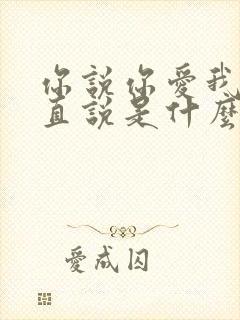 你說你愛我
直說是什麼
愛成囚